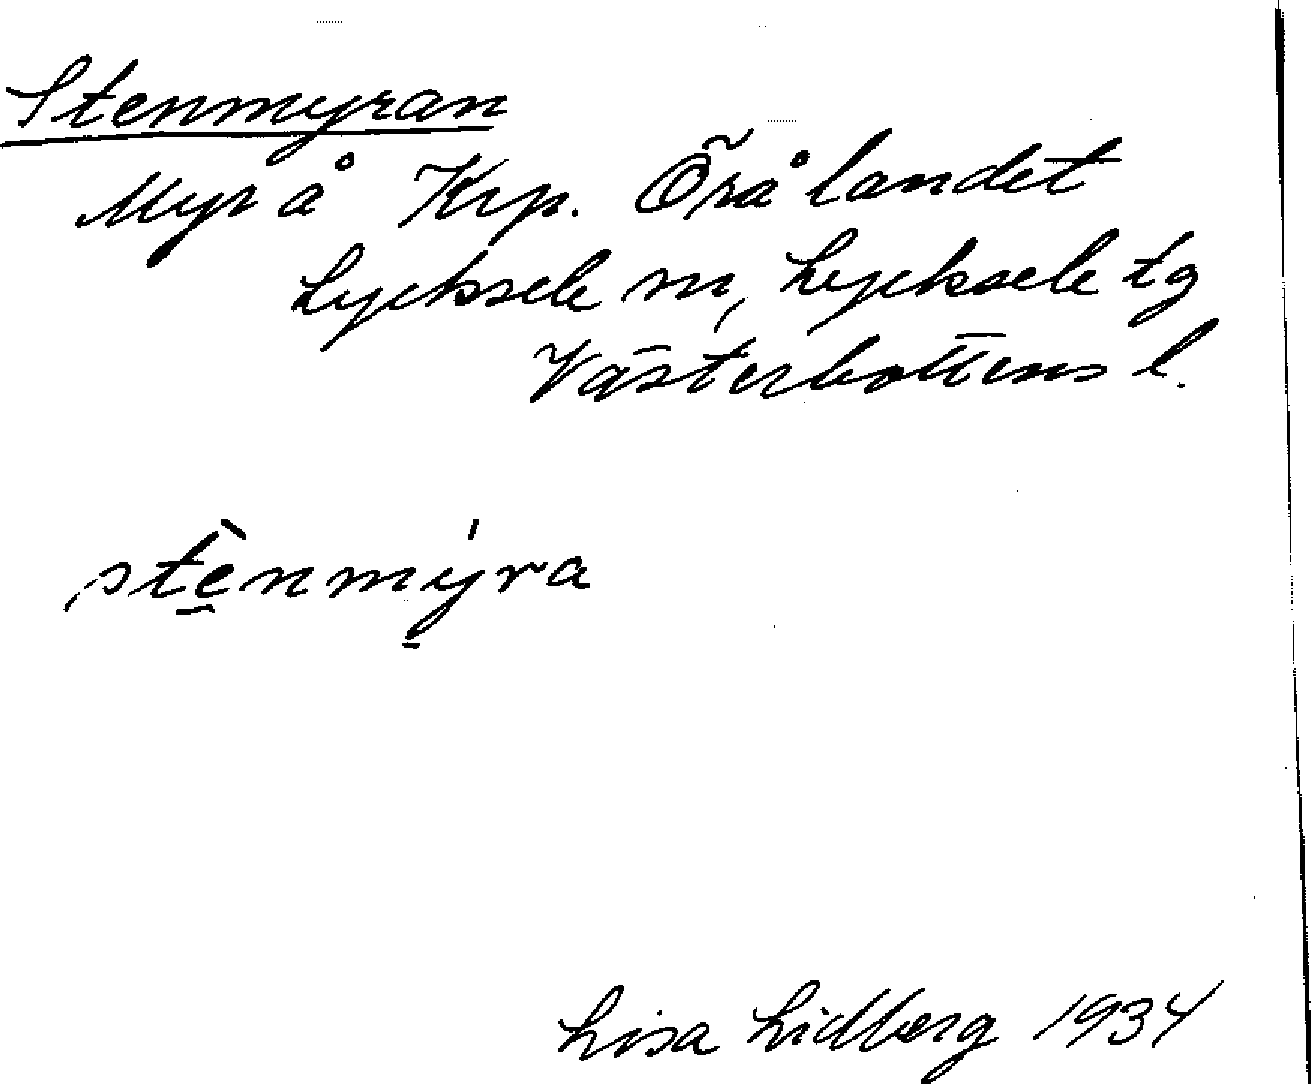 Stenmyran
Myr å Krp. Örålandet
Lycksele m, Lycksele tg
Västerbottens l.
stè̱nmý̱ra
Lisa Lidberg 1934